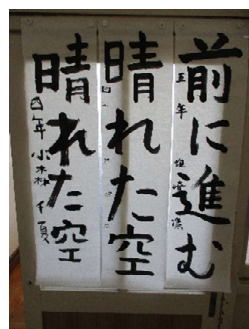 前に進む
五年
晴れた空
晴れた空
四年 小森 千夏